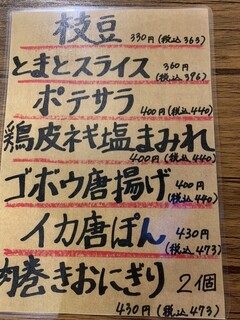 枝豆 330円(税込363)
とまとスライス 360円(税込396)
ポテサラ 400円(税込440)
鶏皮ネギ塩まみれ 400円(税込440)
ゴボウ唐揚げ 400円(税込440)
イカ唐ぽん 430円(税込473)
肉巻きおにぎり 2個 430円(税込473)